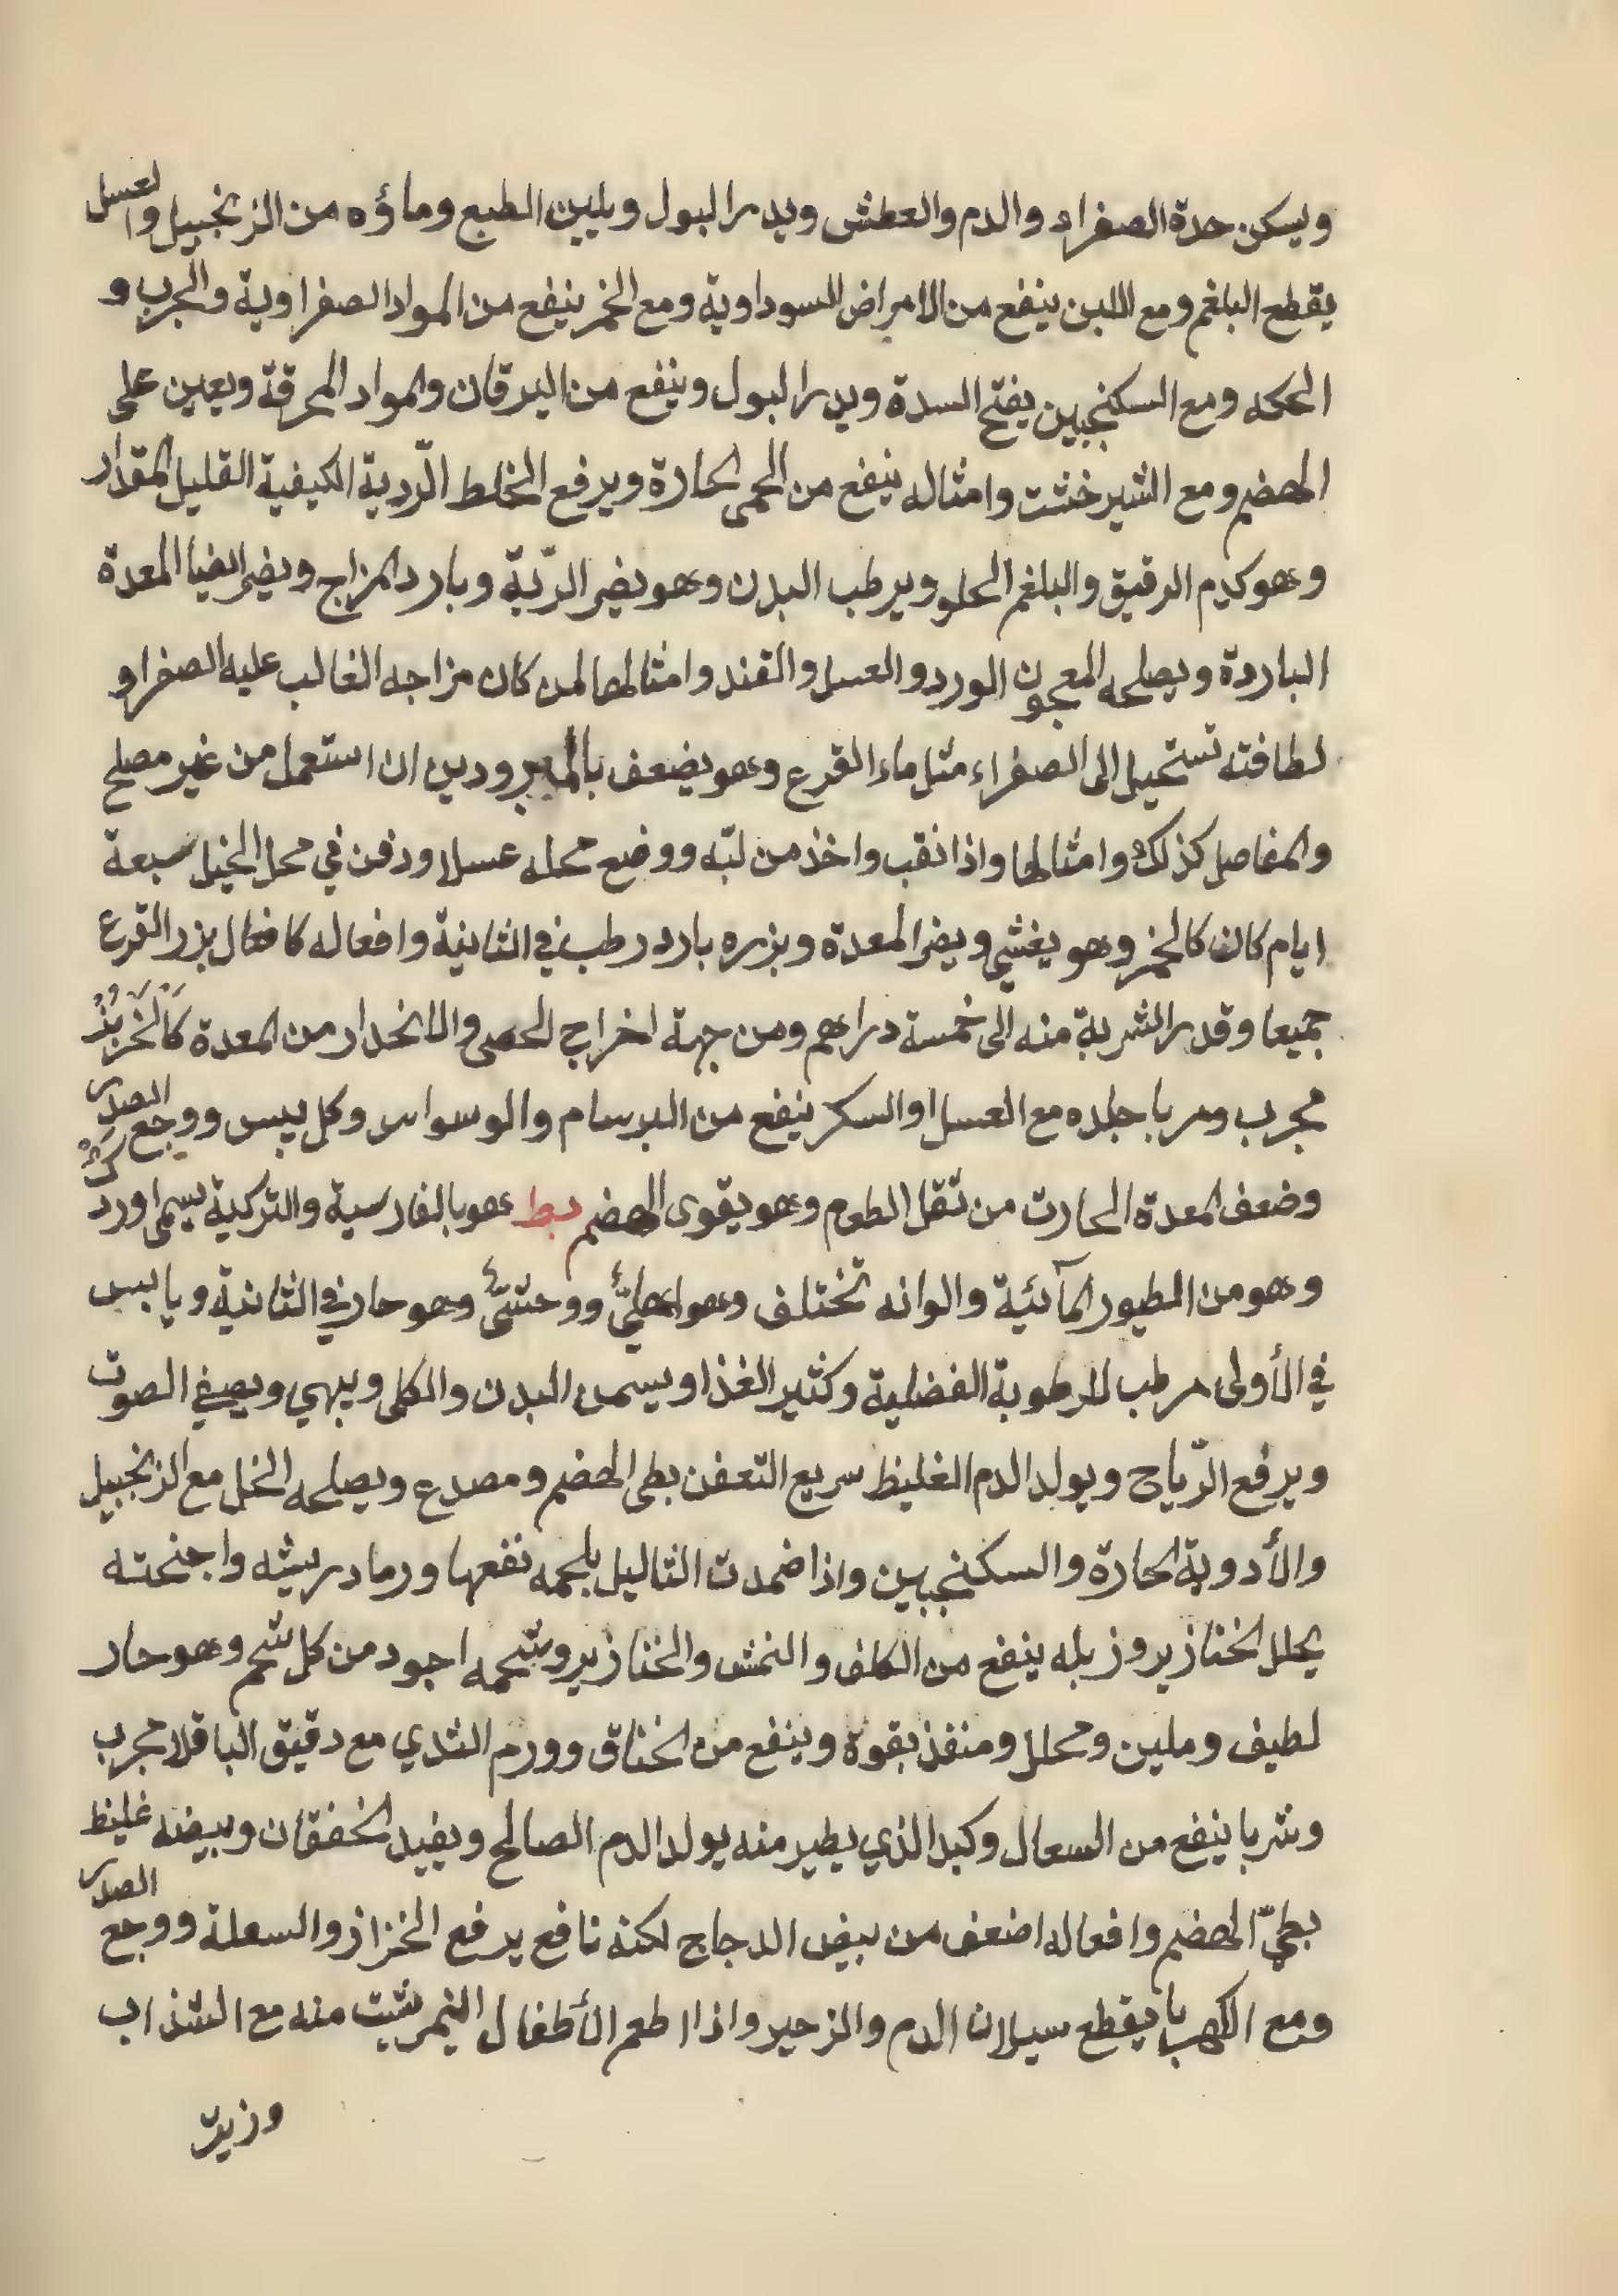 ويسكن حدة الصفراء والدم والعطش ويدر البول ويلين الطبع وماؤه من الزنجبيل والعسل
يقطع البلغم ومع اللبن ينفع من الامراض السوداوية ومع الخمر ينفع من المواد الصفراوية والجرب و
الحكه ومع السكنجبين يفتح السدة ويدر البول وينفع من اليرقان والمواد المحرقة ويعين على
الهضم ومع الشيرخشت وامثاله ينفع من الحمى الحارة ويرفع الخلط الرّدية الكيفية القليل المقدار
وهو كدم الرقيق والبلغم الحلو ويرطب البدن وهو يضر الرّية وبارد المزاج ويضر ايضا المعدة
الباردة ويصلحه المعجون الورد والعسل والقند وامثالها لمن كان مزاجه الغالب عليه الصفرا و
لطافته تستحيل الى الصفراء مثل ماء القرع وهو يضعف بالمبرودين ان استعمل من غير مصلح
والمفاصل كذلك وامثالها واذا نقب واخذ من لبّه ووضع محله عسلا ودفن في محل الخيل سبعة
ايام كان كالخمر وهو يغشي ويضر المعدة وبزره بارد رطب في الثانية وافعاله كافعال بزر القرع
جميعا وقدر الشربة منه الى خمسة دراهم ومن جهة اخراج الحصى والانحدار من المعدة كالخربز
مجرب ومربا جلده مع العسل او السكر ينفع من البرسام والوسواس وكل يبس ووجع الصدر
وضعف المعدة الحارت من ثقل الطعوم وهو يقوى الهضم بط هو بالفارسية والتركية يسمى اوردك
وهو من الطيور المآئية والوانه تختلف وهو اهليٌّ ووحشيٌّ وهو حار في الثانية ويابس
في الأولى مرطب للرطوبة الفضلية وكثير الغذا ويسمن البدن والكلى ويبهي ويصفي الصوت
ويرفع الرّياح ويولد الدم الغليظ سريع التعفن بطى الهضم ومصدع ويصلحه الخل مع الزنجبيل
والأدوية الحارة والسكنجبين واذا ضمدت الثاليل بلحمه نفعها ورماد ريشه واجنحته
يحلل الخنازير وزبله ينفع من الكلف والنمش والخنازير وشحمه اجود من كل شحم وهو حار
لطيف وملين ومحلل ومنفذ بقوة وينفع من الخناق وورم الثدي مع دقيق الباقلا مجرب
وشربا ينفع من السعال وكبد الذي يطير منه يولد الدم الصالح ويفيد الخفقان وبيضه غليظ
بطيّ الهضم وافعاله اضعف من بيض الدجاج لكنه نافع يرفع الخزاز والسعلة ووجع الصدر
ومع الكهربا يقطع سيلان الدم والزحير واذا اطعم الأطفال النيمرشت منه مع الشذاب
وزيت